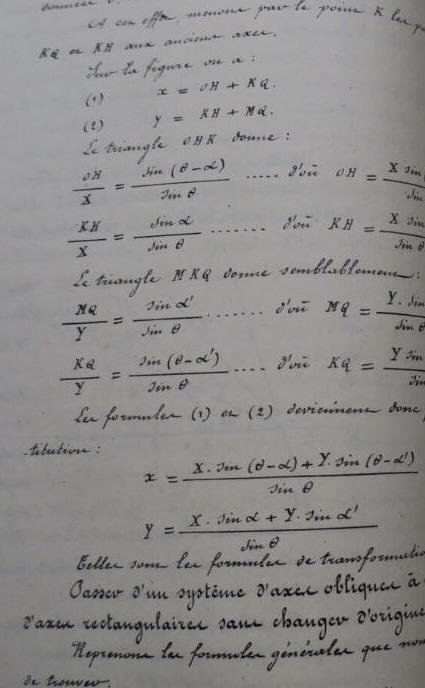 A cet effet, menons par le point K les
KQ et KH aux anciens axes.
Sur la figure on a :
(1) x = OH + KQ.
(2) y = KH + MQ.
Le triangle OHK donne :
OH/X = sin (θ-α)/sin θ ..... d'où OH = X sin
KH/X = sin α/sin θ ....... d'où KH = X sin
Le triangle MKQ donne semblablement :
MQ/Y = sin α'/sin θ ....... d'où MQ = Y. sin/sin θ
KQ/Y = sin (θ-α')/sin θ .... d'où KQ = Y sin/sin
Les formules (1) et (2) deviennent donc
-titution :
x = X. sin (θ-α) + Y. sin (θ-α')/sin θ
y = X. sin α + Y. sin α'/sin θ
Telles sont les formules de transformatio
Passer d'un système d'axes obliques à
d'axes rectangulaires sans changer d'origine
Reprenons les formules générales que nou
de trouver.